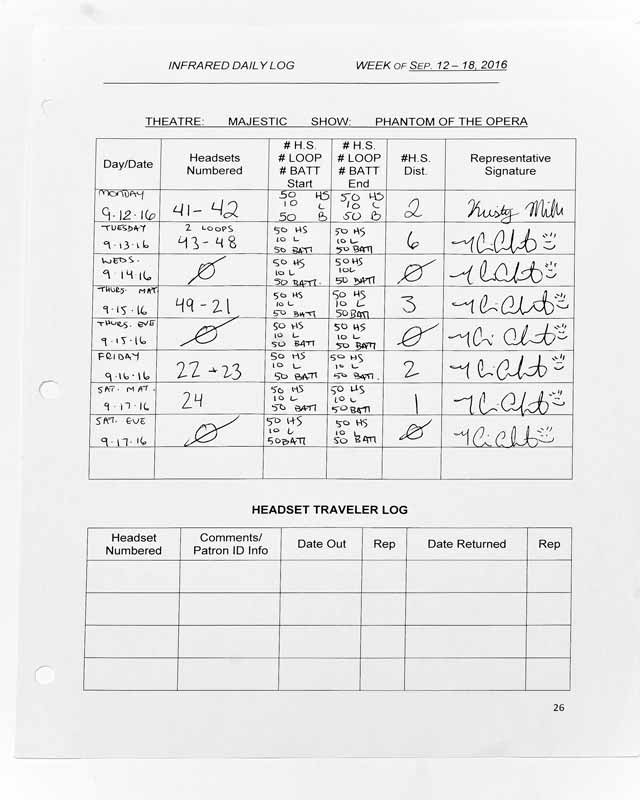 INFRARED DAILY LOG WEEK OF SEP. 12 – 18, 2016
THEATRE: MAJESTIC SHOW: PHANTOM OF THE OPERA
Day/Date
Headsets
Numbered
# H.S.
# LOOP
# BATT
Start
# H.S.
# LOOP
# BATT
End
#H.S.
Dist.
Representative
Signature
MONDAY
9.12.16
41-42
50 HS
10 L
50 B
50 HS
10 L
50 B
2
Kristy Mill
TUESDAY
9.13.16
2 LOOPS
43-48
50 HS
10 L
50 BATT
50 HS
10 L
50 BATT
6
WEDS.
9.14.16
Ø
50 HS
10 L
50 BATT.
50 HS
10L
50 BATT
Ø
THURS. MAT.
9.15.16
49-21
50 HS
10 L
50 BATT
50 HS
10 L
50 BATT
3
THURS. EVE
9.15.16
Ø
50 HS
10 L
50 BATT
50 HS
10 L
50 BATT
Ø
FRIDAY
9.16.16
22→23
50 HS
10 L
50 BATT
50 HS
10 L
50 BATT.
2
SAT. MAT.
9.17.16
24
50 HS
10 L
50 BATT
50 HS
10 L
50 BATT
1
SAT. EVE
9.17.16
Ø
50 HS
10 L
50 BATT
50 HS
10 L
50 BATT
Ø
HEADSET TRAVELER LOG
Headset
Numbered
Comments/
Patron ID Info
Date Out
Rep
Date Returned
Rep
26